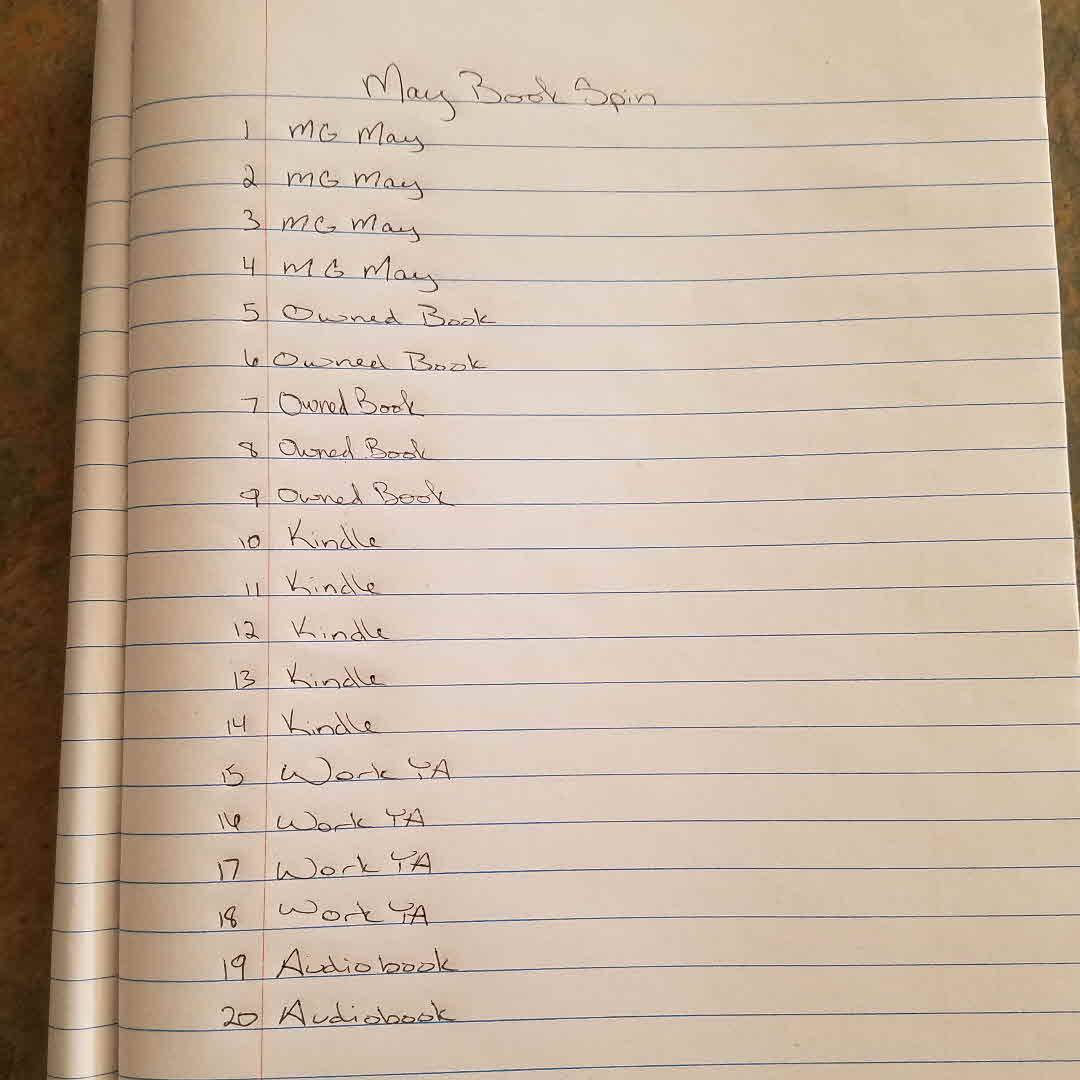 May Book Spin
1 MG May
2 MG May
3 MG May
4 MG May
5 Owned Book
6 Owned Book
7 Owned Book
8 Owned Book
9 Owned Book
10 Kindle
11 Kindle
12 Kindle
13 Kindle
14 Kindle
15 Work YA
16 Work YA
17 Work YA
18 Work YA
19 Audiobook
20 Audiobook